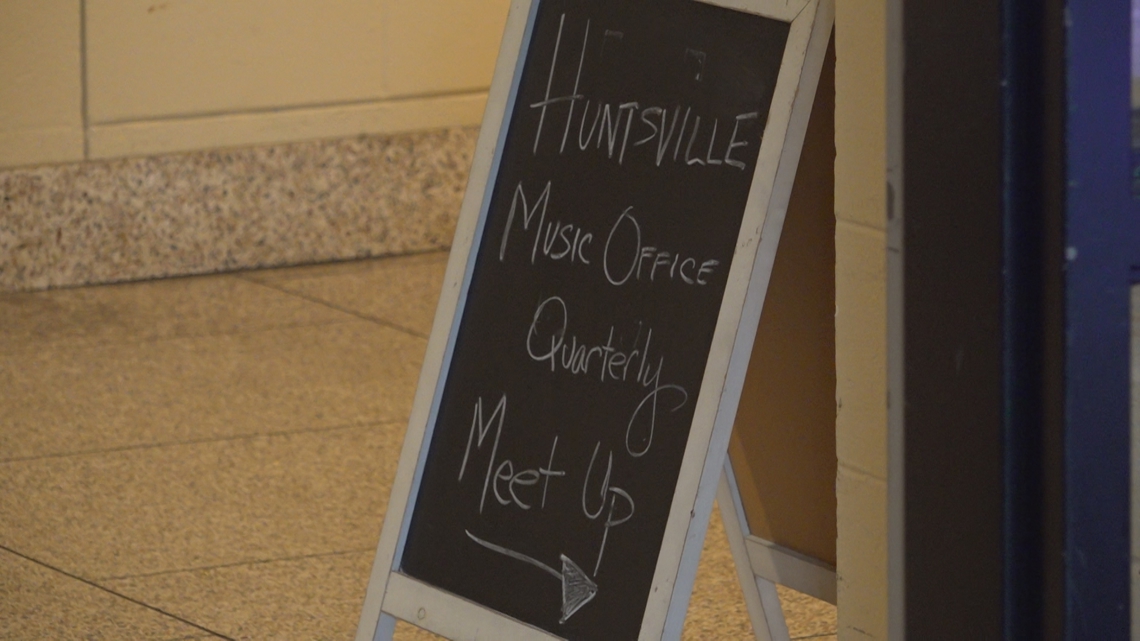 HUNTSVILLE
MUSIC OFFICE
Quarterly
Meet Up